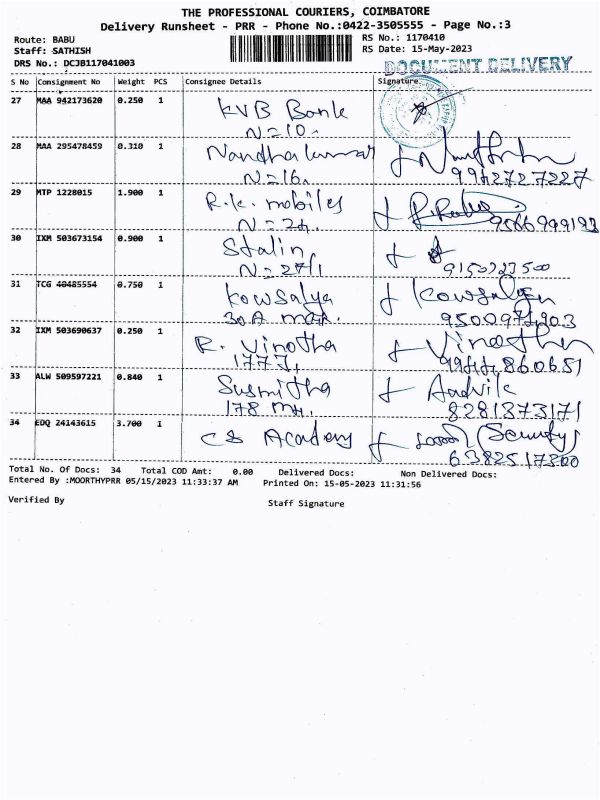 THE PROFESSIONAL COURIERS, COIMBATORE
Delivery Runsheet - PRR - Phone No.:0422-3505555 - Page No.:3
Route: BABU
RS No.: 1170410
Staff: SATHISH
RS Date: 15-May-2023
DRS No.: DCJB117041003
DOCUMENT DELIVERY
S No Consignment No Weight PCS Consignee Details Signature
27 MAA 942173620 0.250 1 KVB Bank
N=10.
28 MAA 295478459 0.310 1 Nandha kumar
N=16. 9942727227
29 MTP 1228015 1.900 1 R.K. mobiles
N=24. 9566999193
30 IXM 503673154 0.900 1 Stalin
N=27/1 9150323500
31 TCG 40485554 0.750 1 Kowsalya Kowsalya
30A
32 IXM 503690637 0.250 1 R. Vinotha Vinotha
1773,
33 ALW 509597221 0.840 1 Susmitha Aadvik
178 8281373171
34 EDQ 24143615 3.700 1 CS Academy (Security)
6382517300
Total No. Of Docs: 34 Total COD Amt: 0.00 Delivered Docs: Non Delivered Docs:
Entered By :MOORTHYPRR 05/15/2023 11:33:37 AM Printed On: 15-05-2023 11:31:56
Verified By Staff Signature